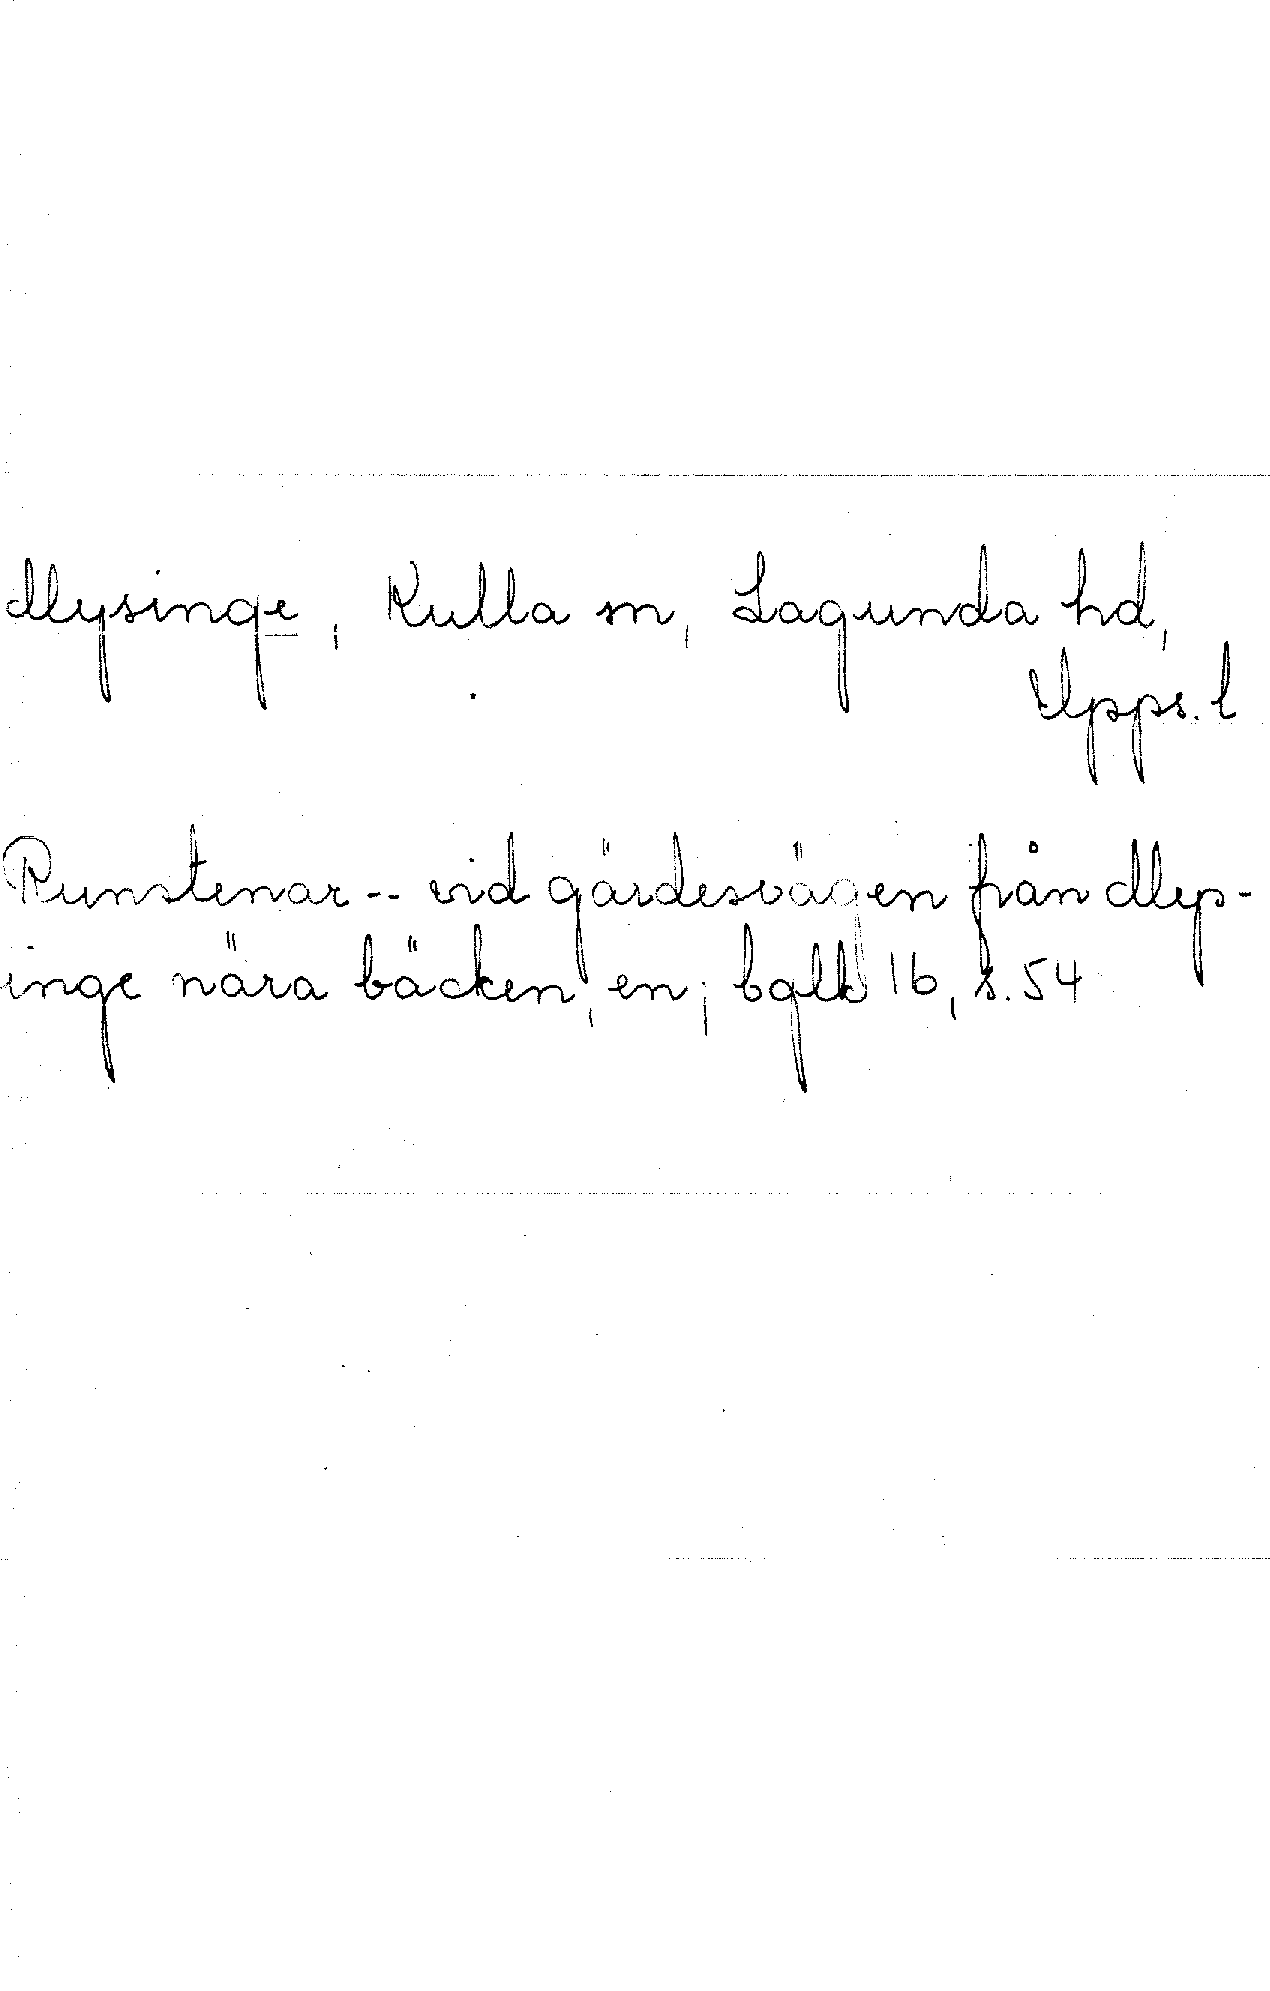 Mysinge, Kulla sn, Lagunda hd,
Upps. l
Runstenar -- vid gärdesvägen från Mys-
inge nära bäcken, en; bqlk 16, s. 54